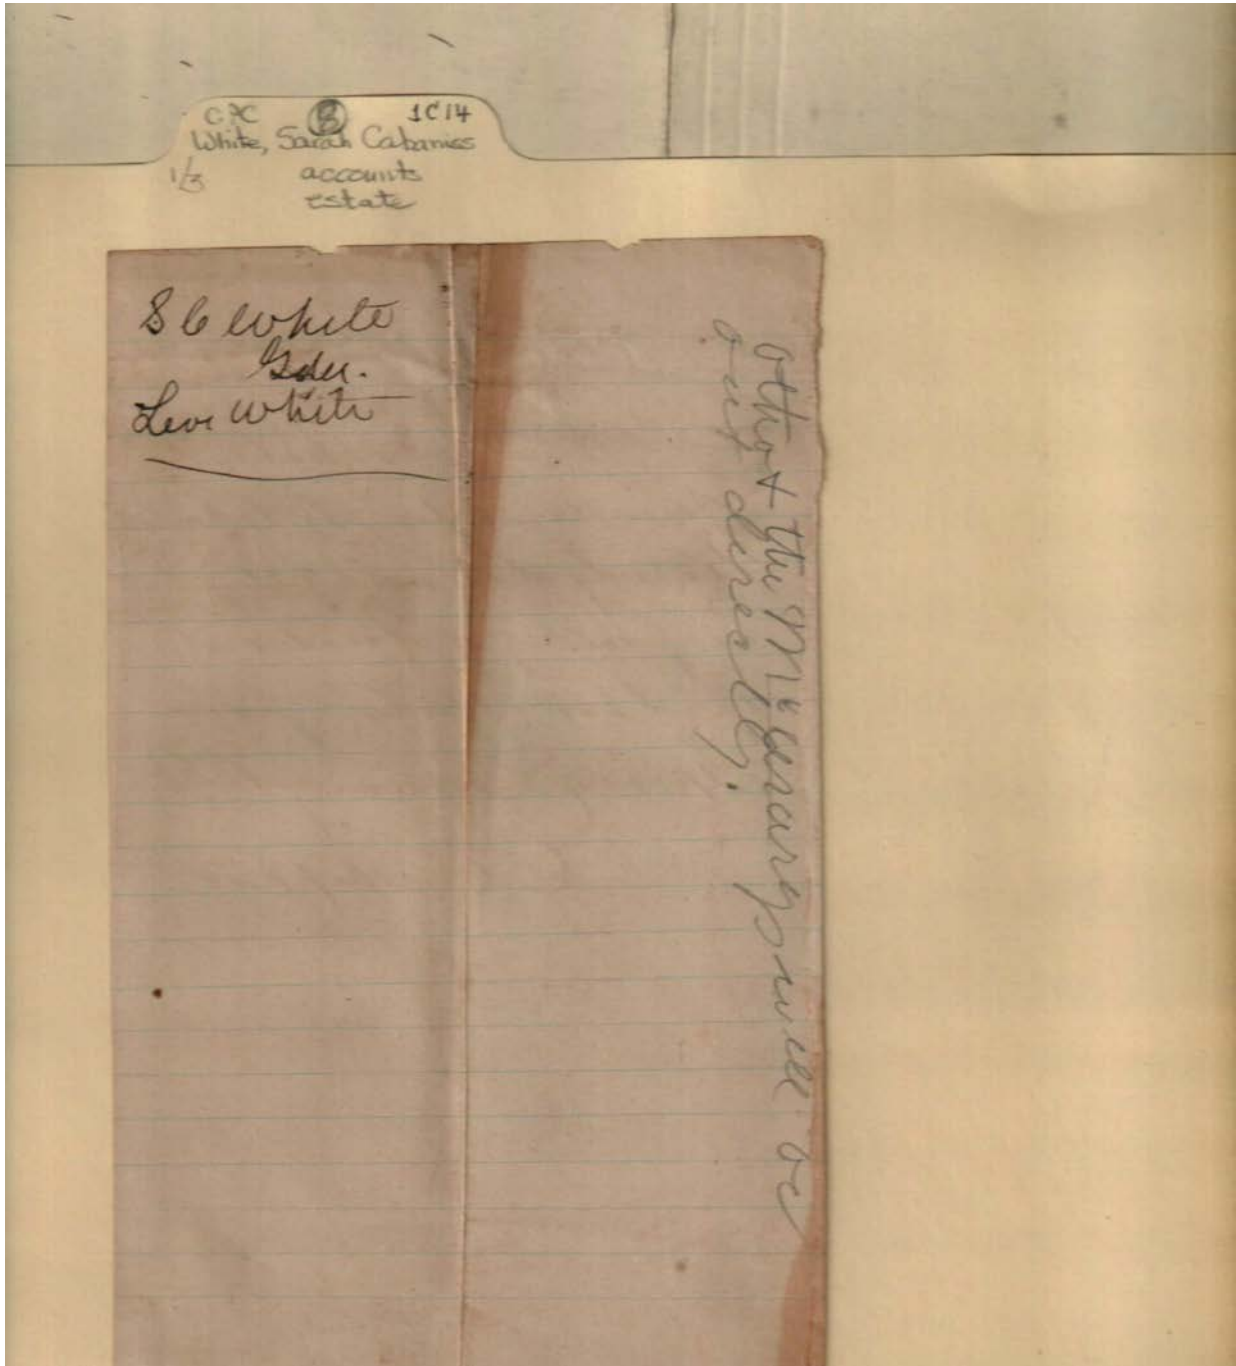 CPC 8 1C14
White, Sarah Cabaniss
1/3 accounts
estate
S C White
Gdn.
Levi White
otho & the McCrarys will be
out directly.